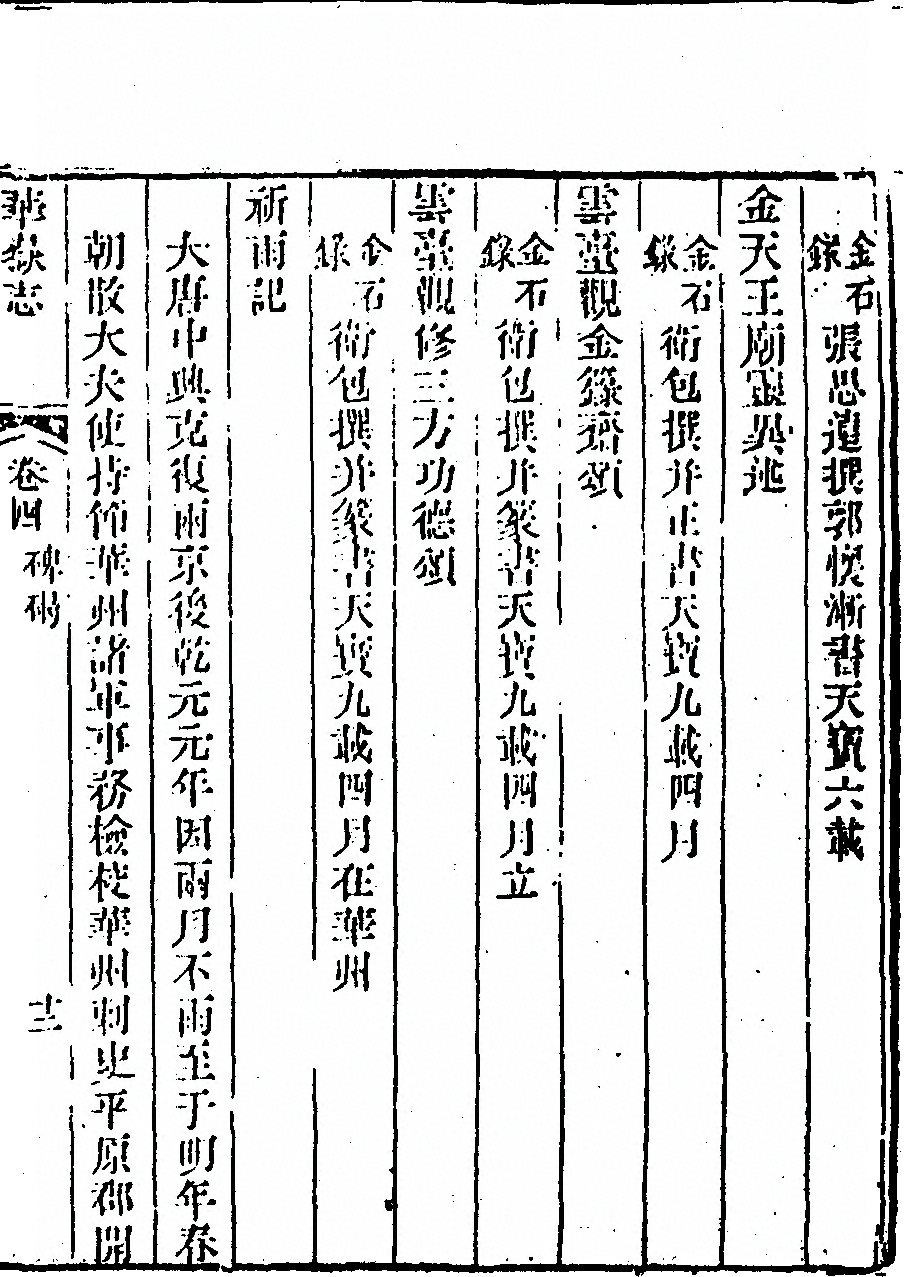 金石錄張思道撰郭慎漸書天寶六載
金天王廟靈異述
金石錄衛包撰并正書天寶九載四月
雲臺觀金籙齋頌
金石錄衛包撰并篆書天寶九載四月立
雲臺觀修三方功德頌
金石錄衛包撰并篆書天寶九載四月在華州
祈雨記
大唐中興克復兩京後乾元元年因兩月不雨至于明年春
朝散大夫使持節華州諸軍事務檢校華州刺史平原郡開
華嶽志
卷四
碑碣
十三